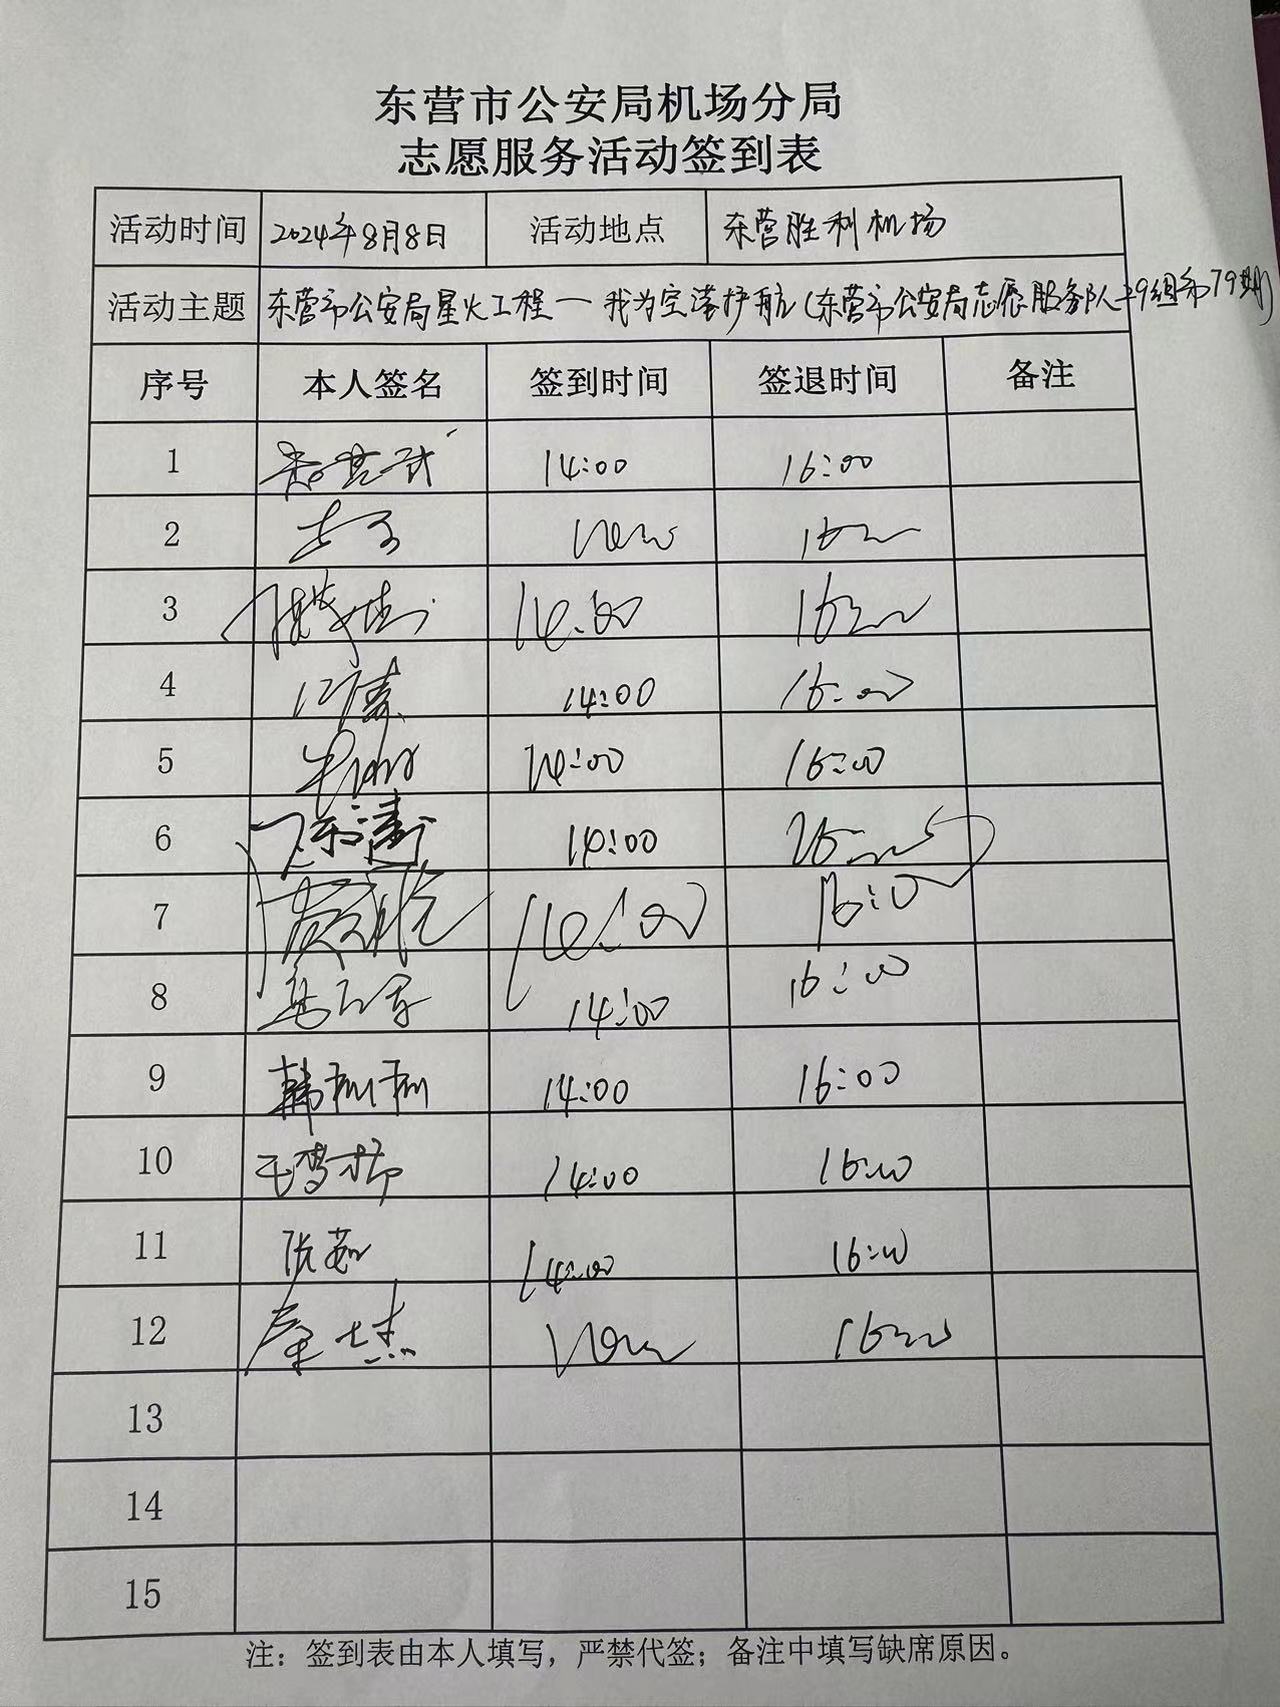 东营市公安局机场分局
志愿服务活动签到表
活动时间 2024年8月8日 活动地点 东营胜利机场
活动主题 东营市公安局星火工程一我为空港护航(东营市公安局志愿服务队29组第79期)
序号 本人签名 签到时间 签退时间 备注
1 14:00 16:00
2 14:00 16:00
3 14:00 16:00
4 14:00 16:00
5 14:00 16:00
6 陈涛 14:00 16:00
7 14:00 16:00
8 14:00 16:00
9 韩利利 14:00 16:00
10 14:00 16:00
11 张茹 14:00 16:00
12 14:00 16:00
13
14
15
注：签到表由本人填写，严禁代签；备注中填写缺席原因。